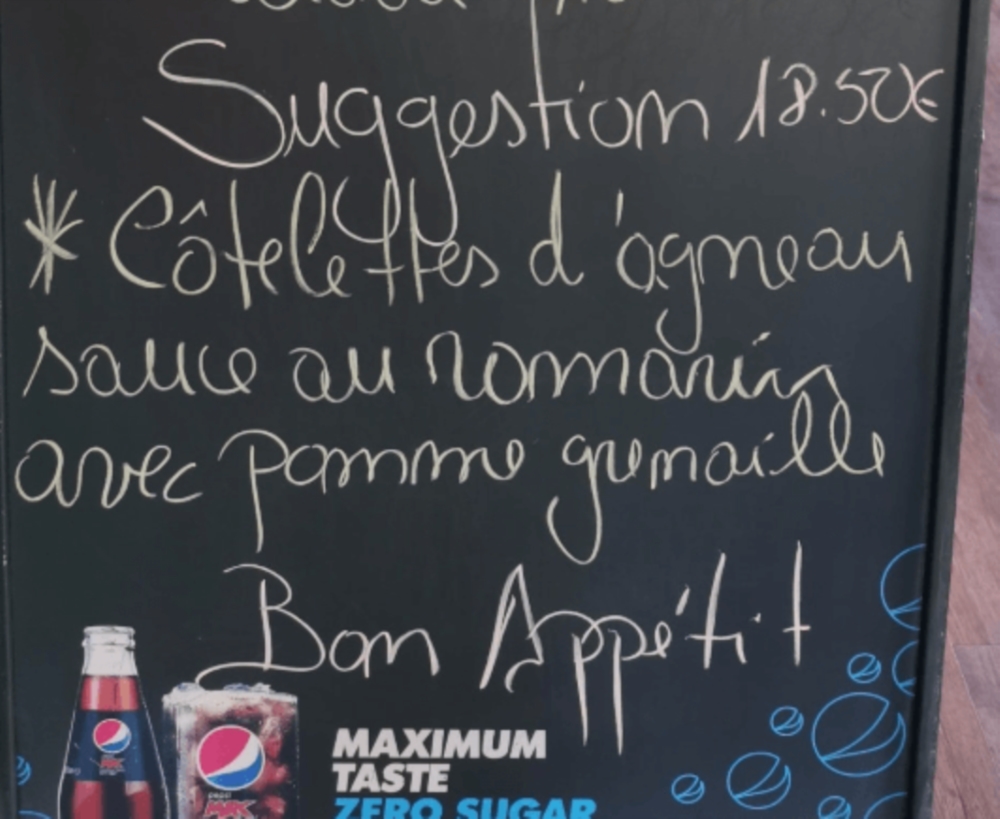 Suggestion 18.50€
* Côtelettes d'agneau
sauce au romarin
avec pomme grenaille
Bon Appétit
MAXIMUM
TASTE
ZERO SUGAR